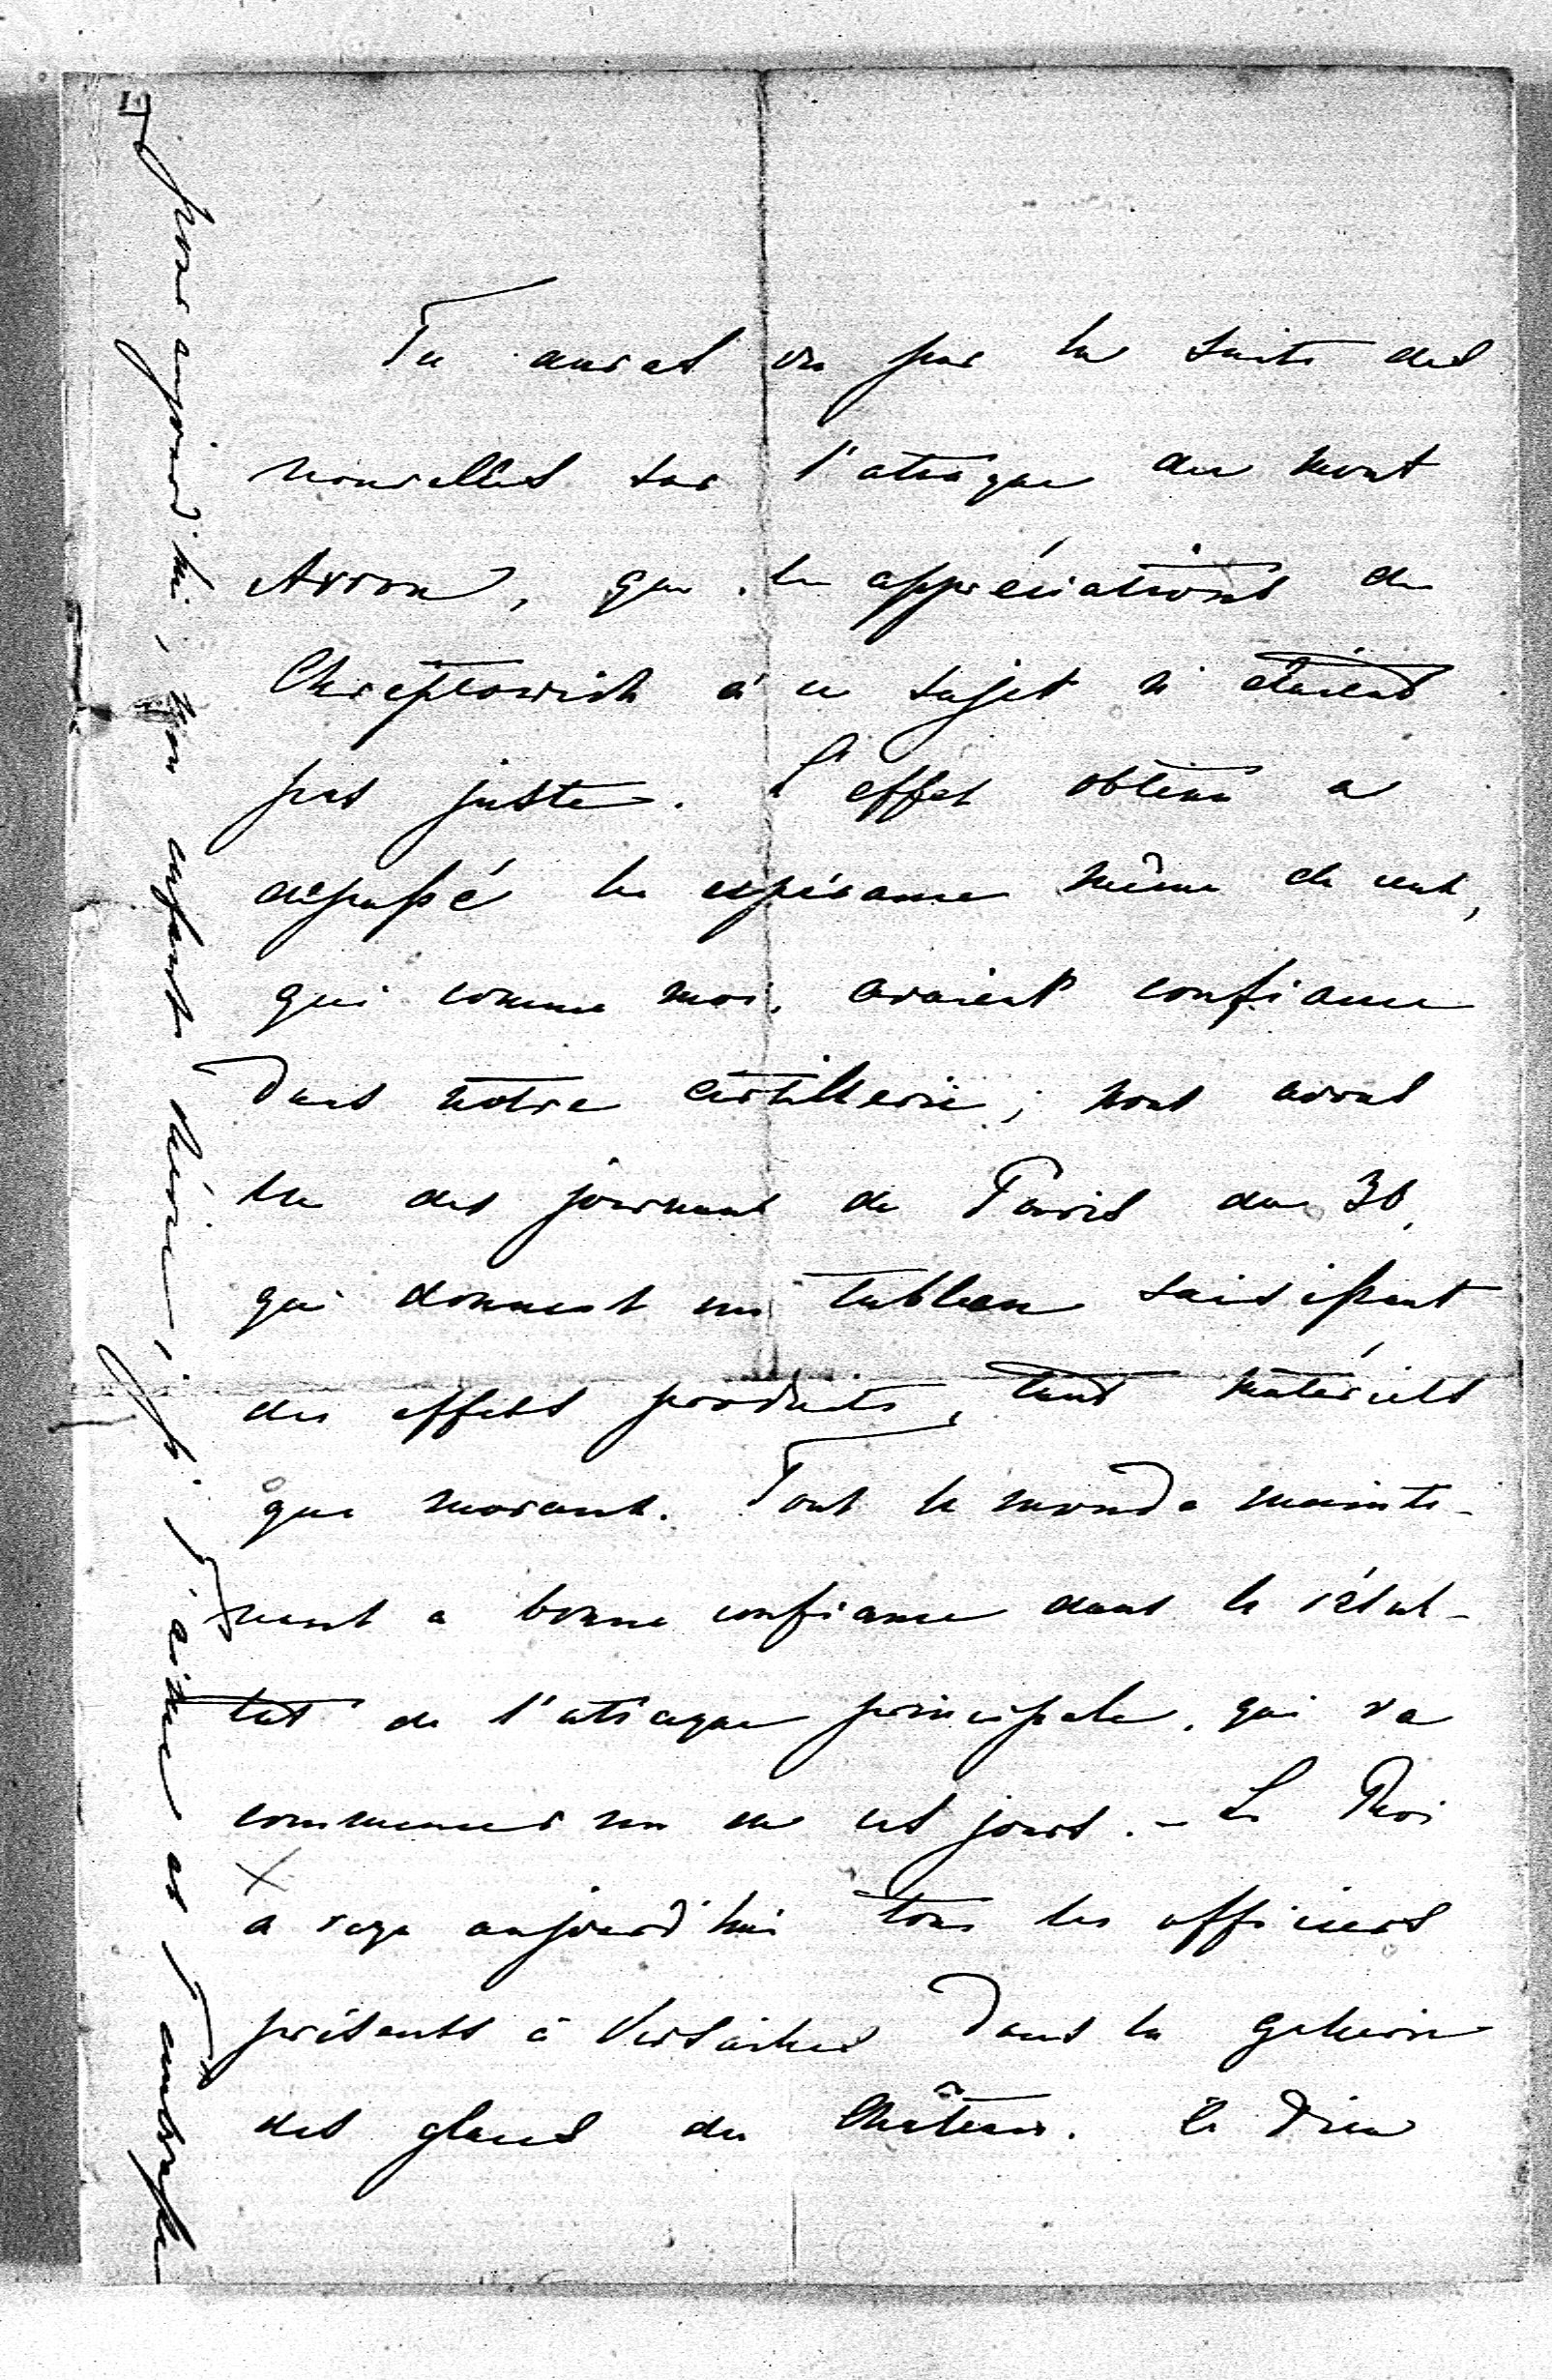 Tu auras vu par la suite des
nouvelles sur l'ataque du mont
Avron, que les appréciations de
Chreptowich à ce sujet n'étaient
pas juste. L'effet obtenu a
depassé les espérance même de ceux,
qui comme moi, avaient confiance
dans notre artillerie; nous avons
lu des journaux de Paris du 30,
qui donnent un tableau saisissant
des effets produits, tant matériels
que moraux. Tout le monde mainte-
nant a bonne confiance dans le résul-
tat de l'ataque principale, qui va
commencer un de ces jours. – Le Roi
a reçu aujourd'hui tous les officiers
présents à Versailles dans la galerie
des glaces du Château. Il
pour aujourd'hui, mon enfant chérie, je t'aime et t'embrasse